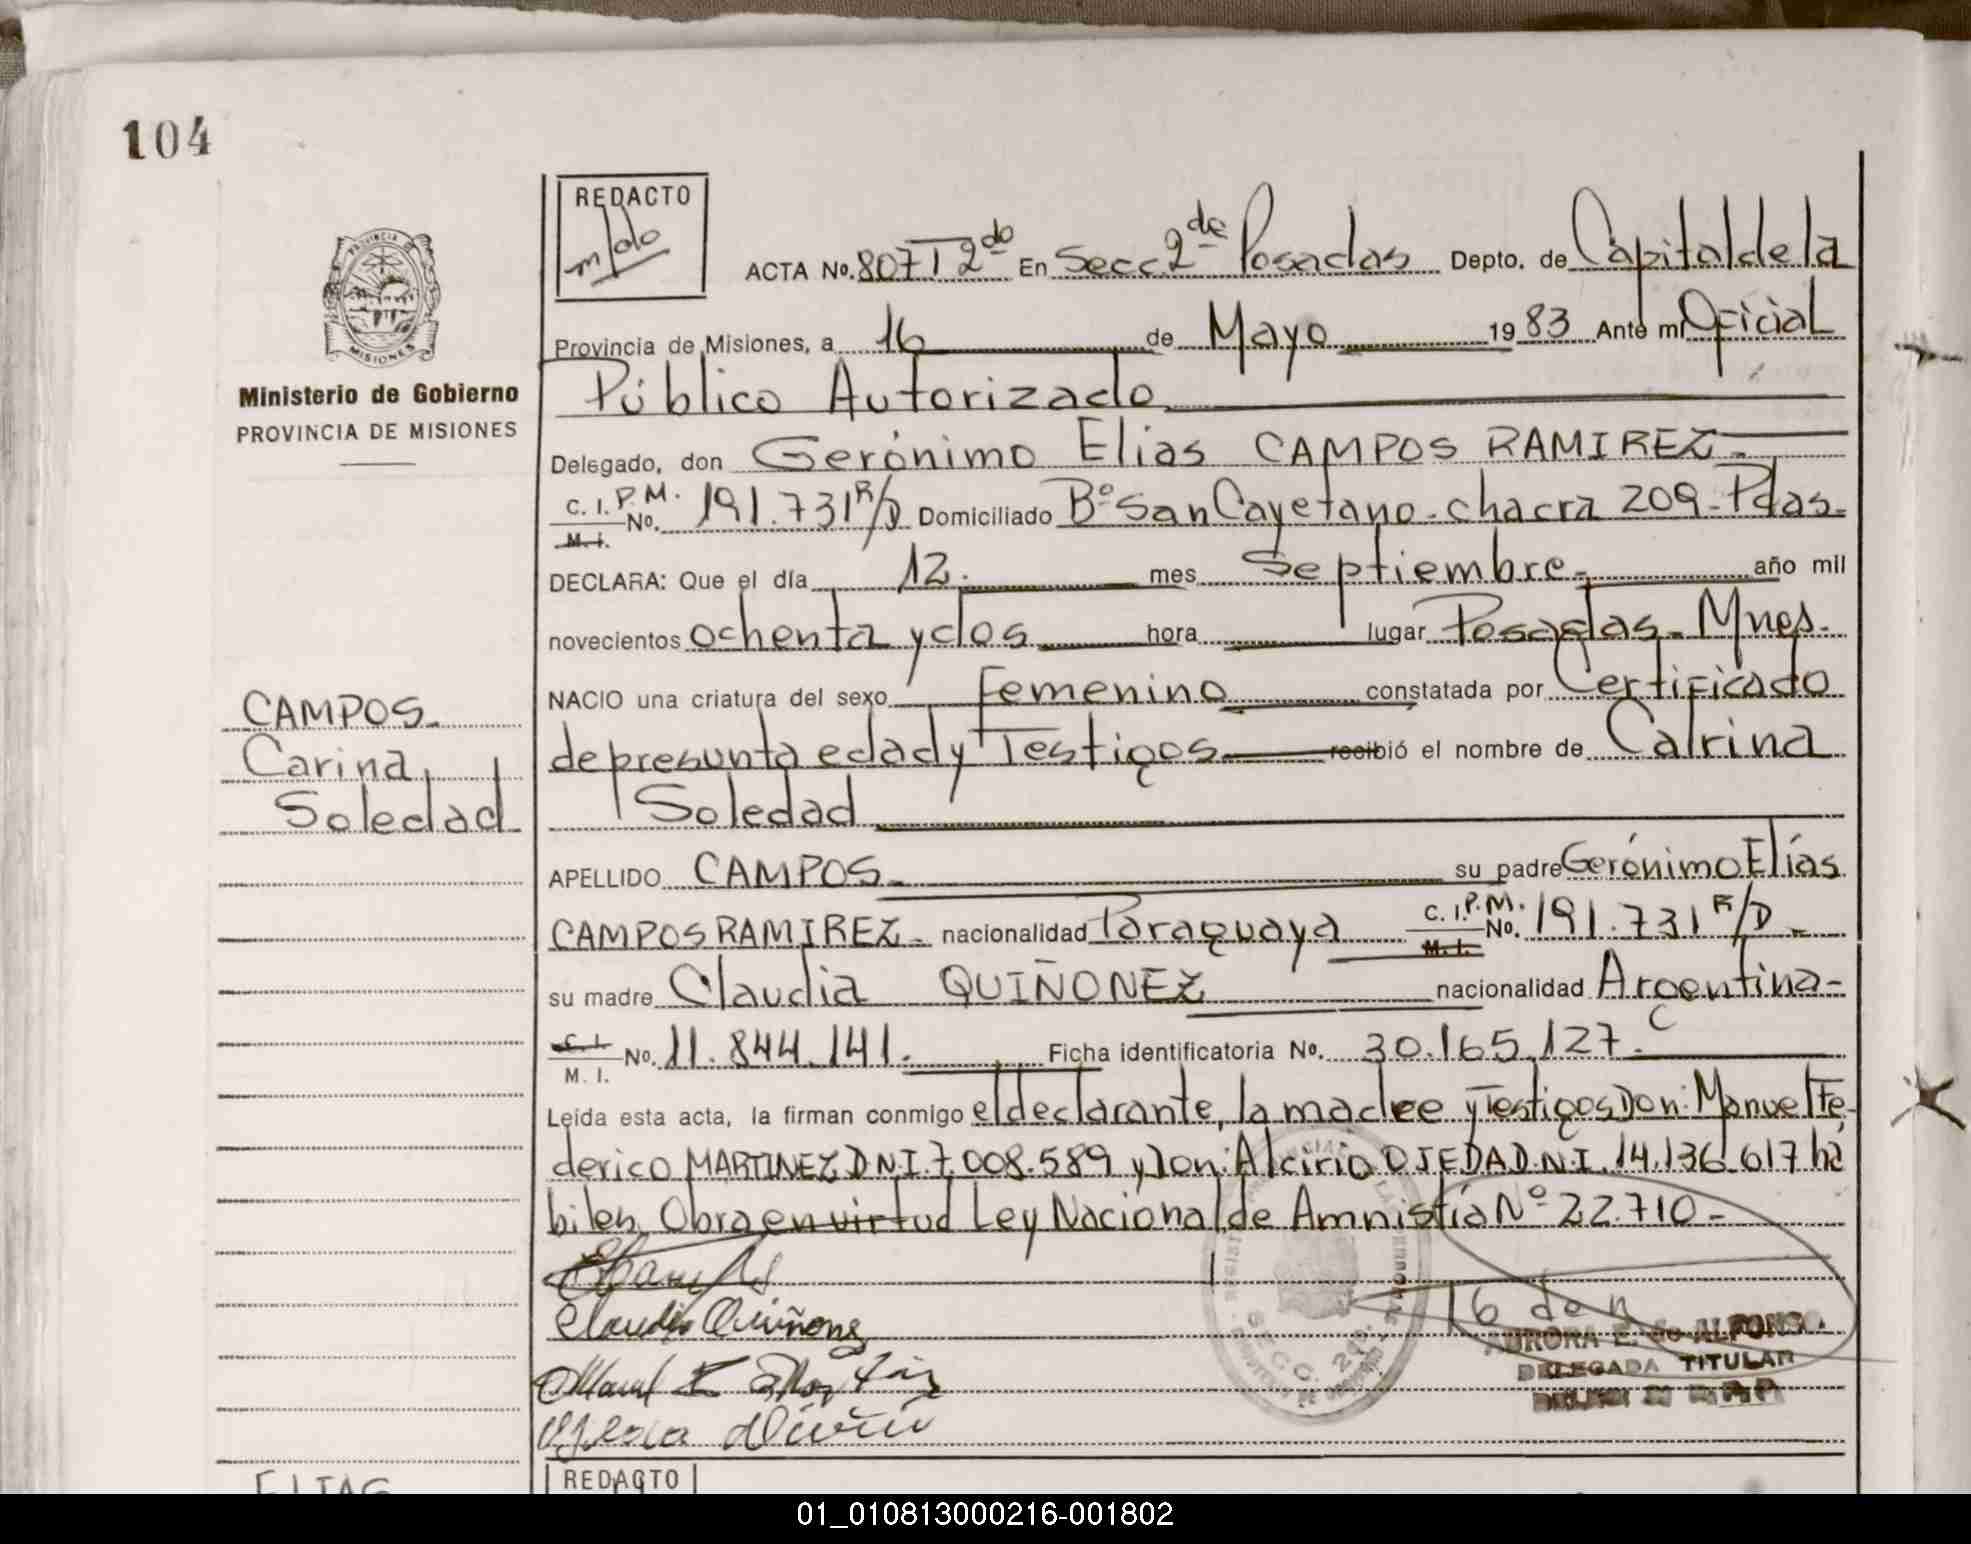 104
REDACTO
m/do
PROVINCIA DE
MISIONES
Ministerio de Gobierno
PROVINCIA DE MISIONES
ACTA No. 807 T 2do En Secc 2da Posadas Depto. de Capital de la
Provincia de Misiones, a 16 de Mayo 1983 Ante mi Oficial
Público Autorizado
Delegado, don Gerónimo Elias CAMPOS RAMIREZ.
C. I. P.M. M. I. No. 191.731 R/D Domiciliado Bº San Cayetano - chacra 209 - Pdas.
DECLARA: Que el día 12. mes Septiembre. año mil
novecientos ochenta y dos hora lugar Posadas. Mnes.
NACIO una criatura del sexo femenino constatada por Certificado
de presunta edad y Testigos recibió el nombre de Calrina
Soledad
CAMPOS.
Carina
Soledad
APELLIDO CAMPOS. su padre Gerónimo Elías
CAMPOS RAMIREZ. nacionalidad Paraguaya C. I. P.M. M. I. No. 191.731 R/D.
su madre Claudia QUIÑONEZ nacionalidad Argentina-
C. I. M. I. No. 11.844.141. Ficha identificatoria No. 30.165.127. C
Leída esta acta, la firman conmigo el declarante, la madre y Testigos Don: Manuel Fe-
derico MARTINEZ D.N.I. 7.008.589 y Don: Alcirio OJEDA D.N.I. 14.136.617 há
biles. Obra en virtud Ley Nacional de Amnistía Nº 22.710-
Claudia Quiñonez
SECC. 2da.
16 de
AURORA E. de ALFONSO
DELEGADA TITULAR
ELIAS
REDACTO
01_010813000216-001802